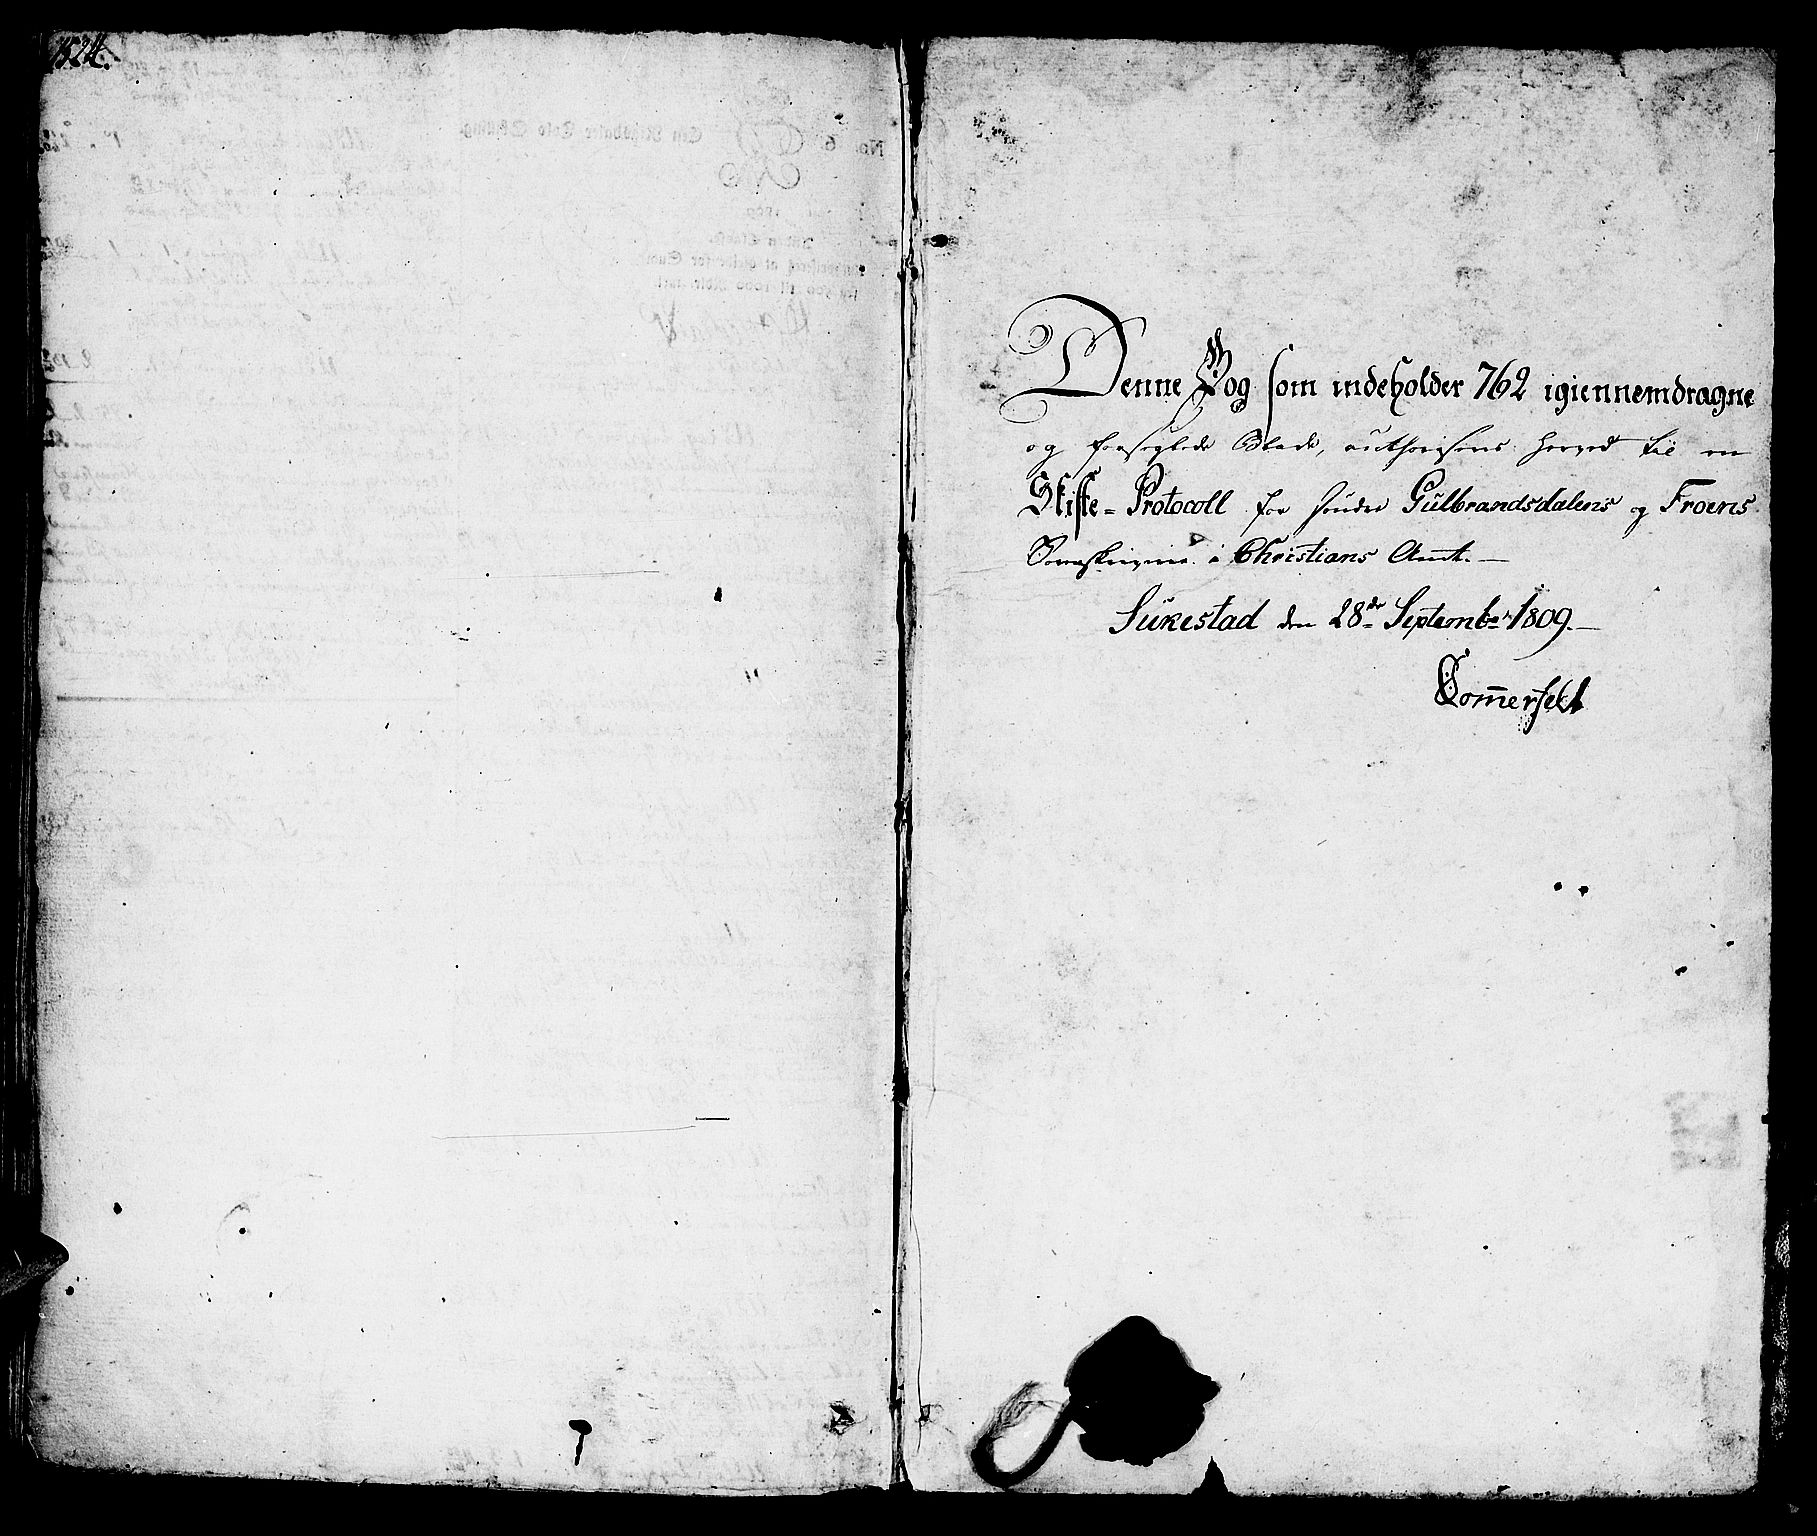 1524.
Denne Bog som indeholder 762 igiennemdragne
og forseglede Blade, authoriseres herved til en
Skifte-Protocoll for söndre Gülbrandsdalens og Froens
Sorenskriverie i Christians Amt.
Sükestad den 28de September 1809.
Som̅erfelt